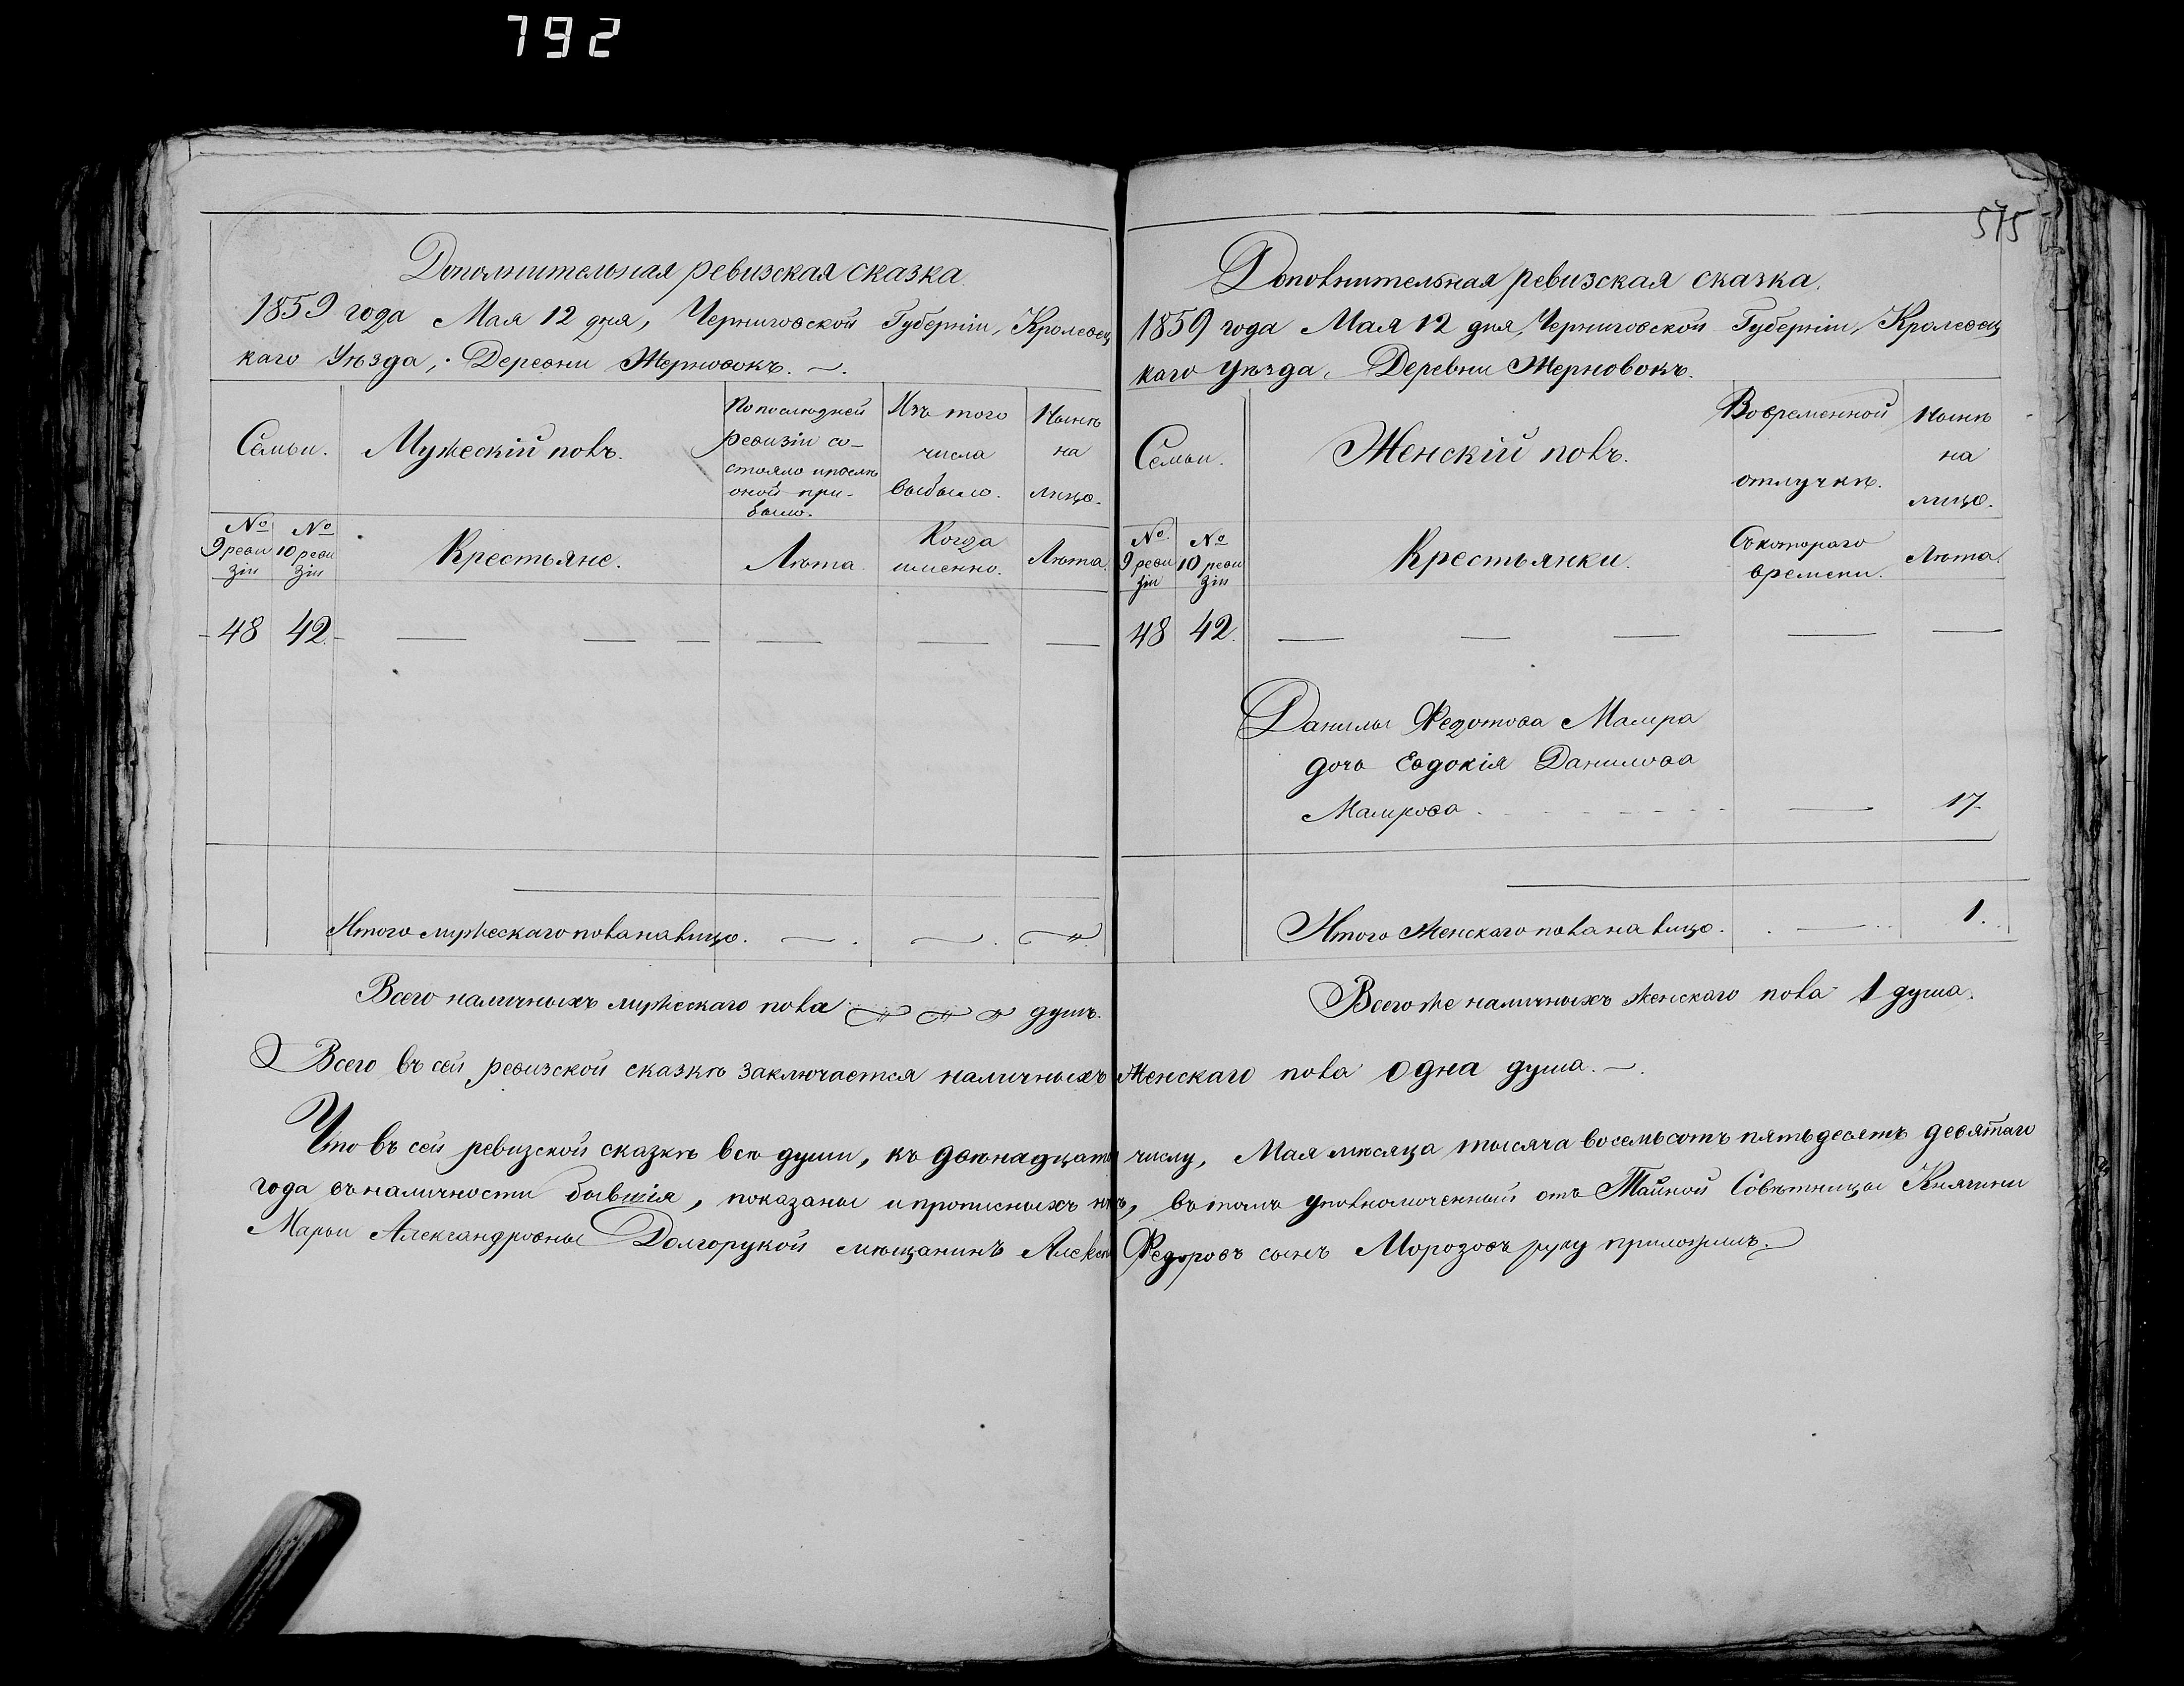 792
575
Дополнительная ревизская сказка.
1859 года Мая 12 дня, Черниговской Губерніи, Кролевец
каго Уѣзда, Деревни Жерновокъ.
Семьи.
Мужескій полъ.
По послѣдней
ревизіи со-
стояло и послѣ
оной при-
было.
Изъ того
числа
выбыло.
Нынѣ
на
лицо.
№ 9 реви
зіи
№ 10 реви
зіи
Крестьяне.
Лѣта.
Когда
именно.
Лѣта.
48 42.
Итого мужескаго пола на лицо.
Всего наличныхъ мужескаго пола душъ.
Дополнительная ревизская сказка.
1859 года Мая 12 дня, Черниговской Губерніи, Кролевец
каго Уѣзда, Деревни Жерновокъ.
Семьи.
Женскій полъ.
Во временной
отлучкѣ.
Нынѣ
на
лицо.
№ 9 реви
зіи
№ 10 реви
зіи
Крестьянки.
Съ котораго
времени.
Лѣта.
48 42.
Данилы Федотова
дочь Евдокія Данилова
17.
Итого Женскаго пола на лицо. 1.
Всего же наличныхъ женскаго пола 1 душа.
Всего въ сей ревизской сказкѣ заключается наличныхъ Женскаго пола одна душа.
Что въ сей ревизской сказкѣ всѣ души, къ двѣнадцато числу, Мая мѣсяца тысяча восемьсотъ пятьдесятъ девятаго
года въ наличности бывшія, показаны и прописныхъ нѣтъ, въ томъ уполномоченный отъ Тайной Совѣтницы Княгини
Марьи Александровны Долгорукой мѣщанинъ Федоровъ сынъ Морозовъ руку приложилъ.